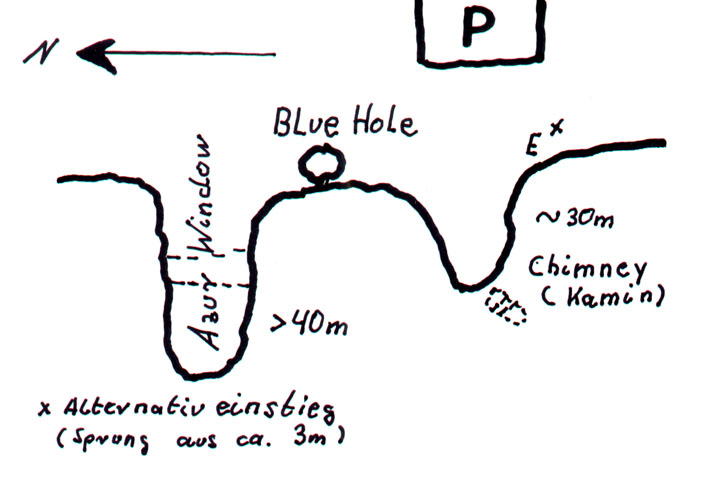 P
N
BLue Hole
E x
Azur Window
~30m
Chimney
(Kamin)
>40m
x Alternativ einstieg
(Sprung aus ca. 3m)